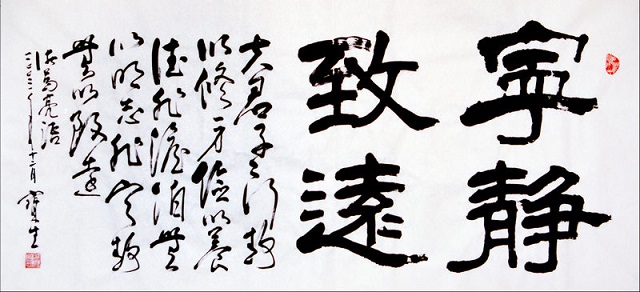 寧靜
致遠
夫君子之行靜
以修身儉以養
德非澹泊無
以明志非寧靜
無以致遠
诸葛亮语
年十二月寶生